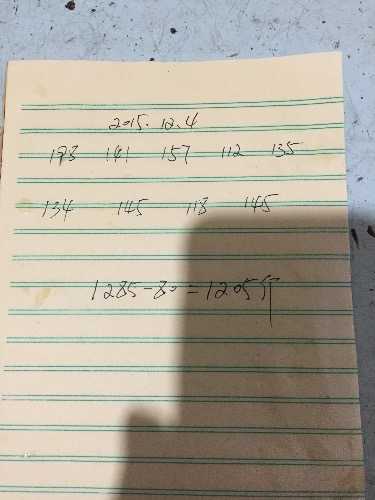 2015.12.4
183 161 157 112 135
134 145 113 145
1285-80=1205斤